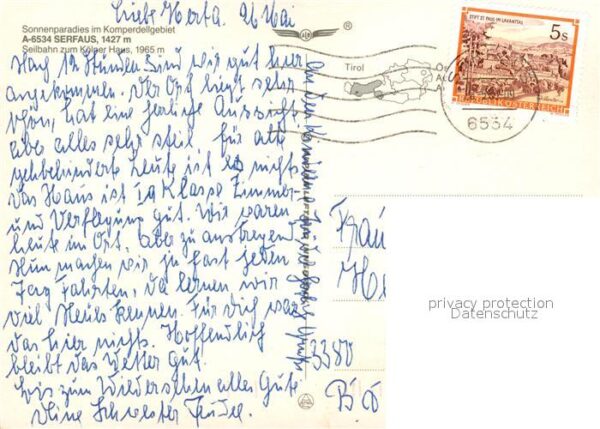 Liebe Herta. 26 Mai
Sonnenparadies im Komperdellgebiet
A-6534 SERFAUS, 1427 m
Seilbahn zum Kölner Haus, 1965 m
Nach 12 Stunden sind wir gut hier
angekommen. Der Ort liegt sehr
schön, hat eine herliche Aussicht
aber alles sehr steil für alte
gehbehinderte Leute ist es nichts
Das Haus ist Ia Klasse Zimmer
und Verflegung gut. Wir waren
heute im Ort. aber zu anstregend.
Nun machen wir ja fast jeden
Tag Fahrten, da lernen wir
viel Neues kennen. Für Dich wär
das hier nichts. Hoffendlich
bleibt das Wetter gut.
bis zum Wiedersehen alles Gute
Deine Schwester
An der
Tirol
STIFT ST. PAUL IM LAVANTTAL
5 S
REPUBLIK ÖSTERREICH
6534
Frau
He
3380
privacy protection
Datenschutz